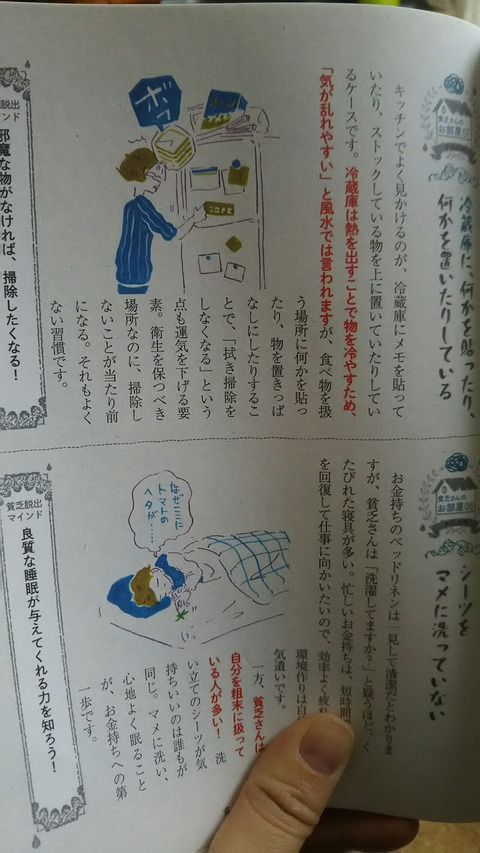 貧乏さんの
お部屋
冷蔵庫に、何かを貼ったり、
何かを置いたりしている
キッチンでよく見かけるのが、冷蔵庫にメモを貼って
いたり、ストックしている物を上に置いていたりしてい
るケースです。冷蔵庫は熱を出すことで物を冷やすため、
「気が乱れやすい」と風水では言われますが、食べ物を扱
う場所に何かを貼っ
たり、物を置きっぱ
なしにしたりするこ
とで、「拭き掃除を
しなくなる」という
点も運気を下げる要
素。衛生を保つべき
場所なのに、掃除し
ないことが当たり前
になる。それもよく
ない習慣です。
脱出
インド
邪魔な物がなければ、掃除したくなる！
貧乏さんの
お部屋08
シーツを
マメに洗っていない
お金持ちのベッドリネンは一見して清潔だとわかりま
すが、貧乏さんは「洗濯してますか？」と疑うほど、く
たびれた寝具が多い。忙しいお金持ちは、短時間
を回復して仕事に向かいたいので、効率よく疲れ
環境作りは自
気遣いです。
一方、貧乏さんは
自分を粗末に扱って
いる人が多い！　洗
い立てのシーツが気
持ちいいのは誰もが
同じ。マメに洗い、
心地よく眠ること
が、お金持ちへの第
一歩です。
なぜここに
トマトの
ヘタが……
貧乏脱出
マインド
良質な睡眠が与えてくれる力を知ろう！